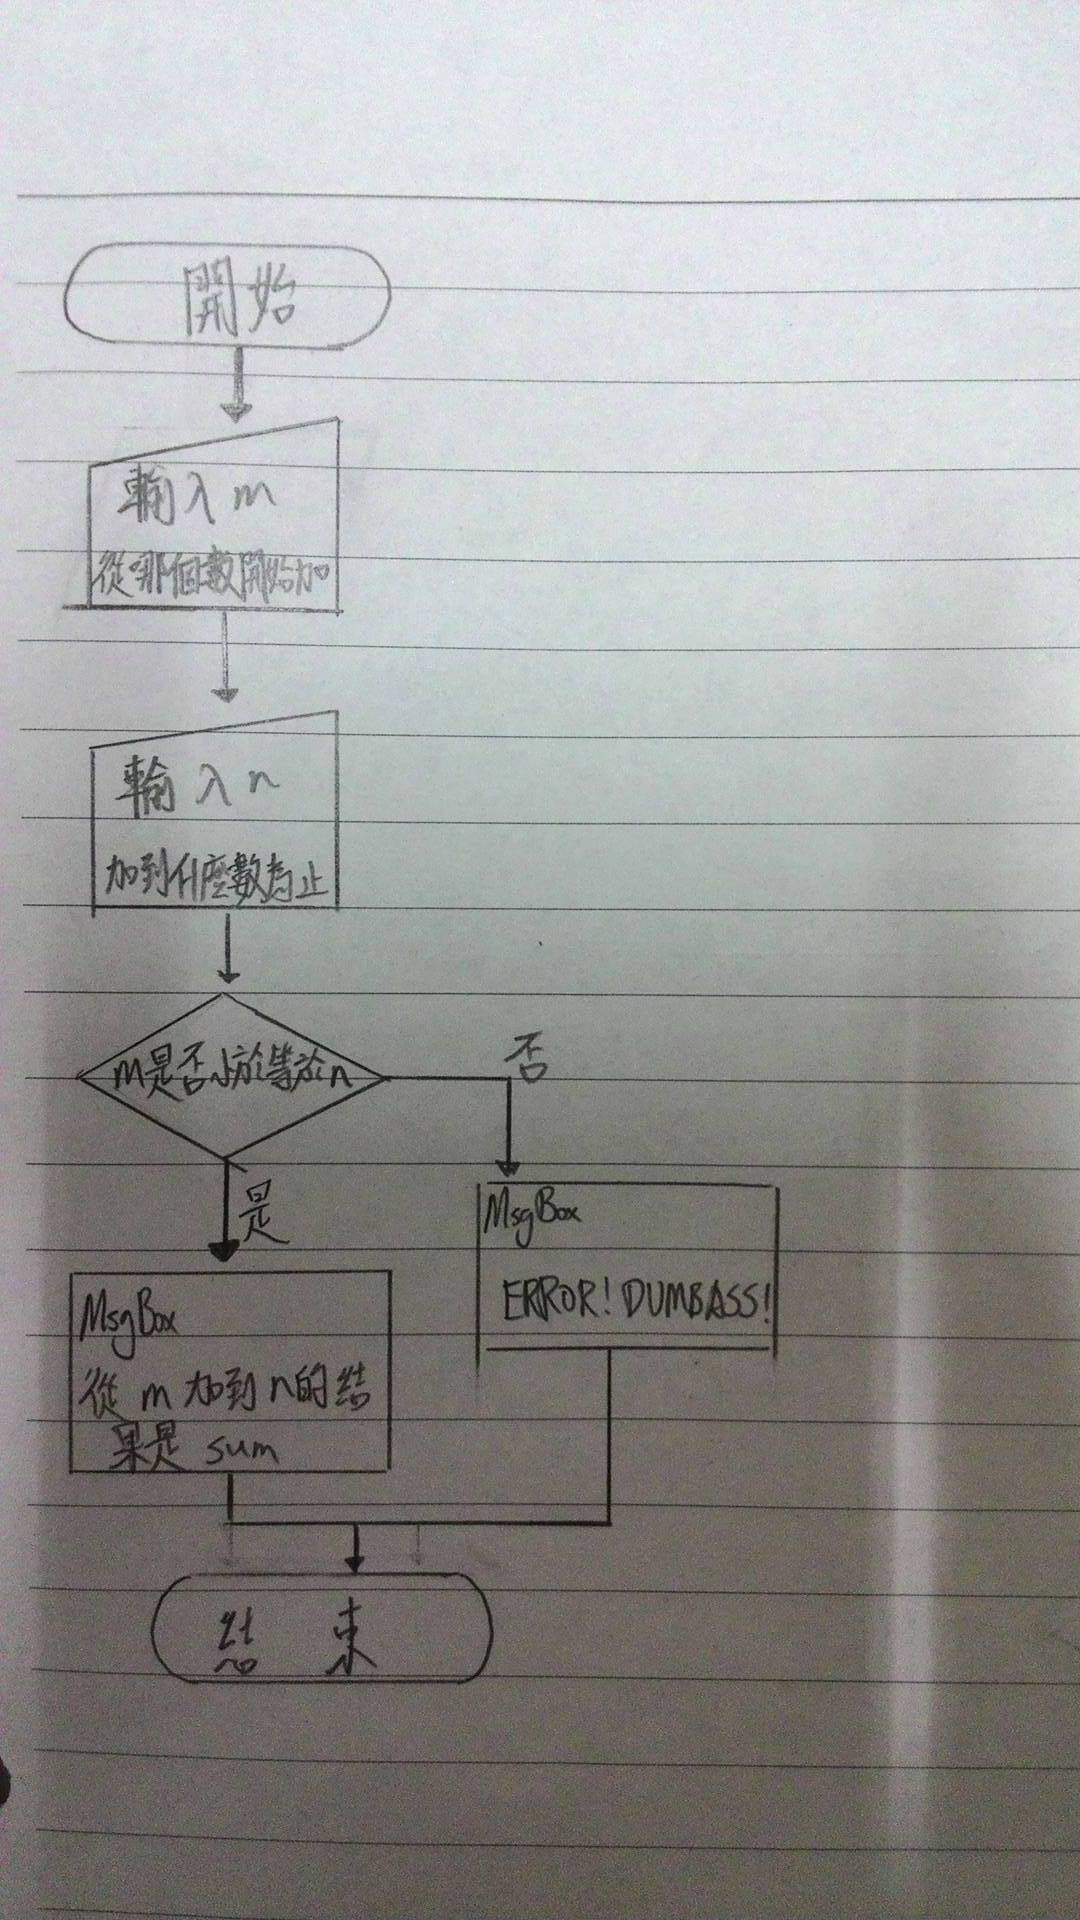 開始
輸入 m
從哪個數開始加
輸入 n
加到什麼數為止
m是否小於等於n
否
是
MsgBox
ERROR! DUMBASS!
MsgBox
從 m 加到 n的結
果是 sum
結 束